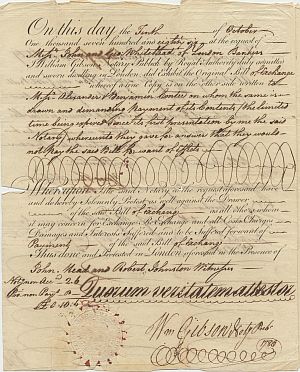 On this day the Tenth of October
One thousand seven hundred and eighty at the request of
Mess.rs John and Geo: Whitehead of London Bankers
I William Gibson Notary Publick by Royal Authority duly admitted
and sworn dwelling in London did Exhibit the Original Bill of Exchange
whereof a true Copy is on the other side written to
Mess.rs Alexander Benjamin on whom the same is
drawn and demanding Payment of its Contents (the limited
time being expired since its first presentation by me the said
Notary) whereunto they gave for answer that they would
not Pay the said Bill for want of effects
Wherefore I the said Notary at the request aforesaid have
and do hereby Solemnly Protest as well against the Drawer
of the said Bill of Exchange as all others whom
it may concern for Exchange Re Exchange and all Costs Charges
Damages and Interests Suffered and to be Suffered for want of
Payment of the said Bill of Exchange
Thus done and Protested in London aforesaid in the Presence of
John Mead and Robert Johnston Witnesses
2.6
Quorum veritatem attestor
Wm Gibson Not.y Pub.
1780